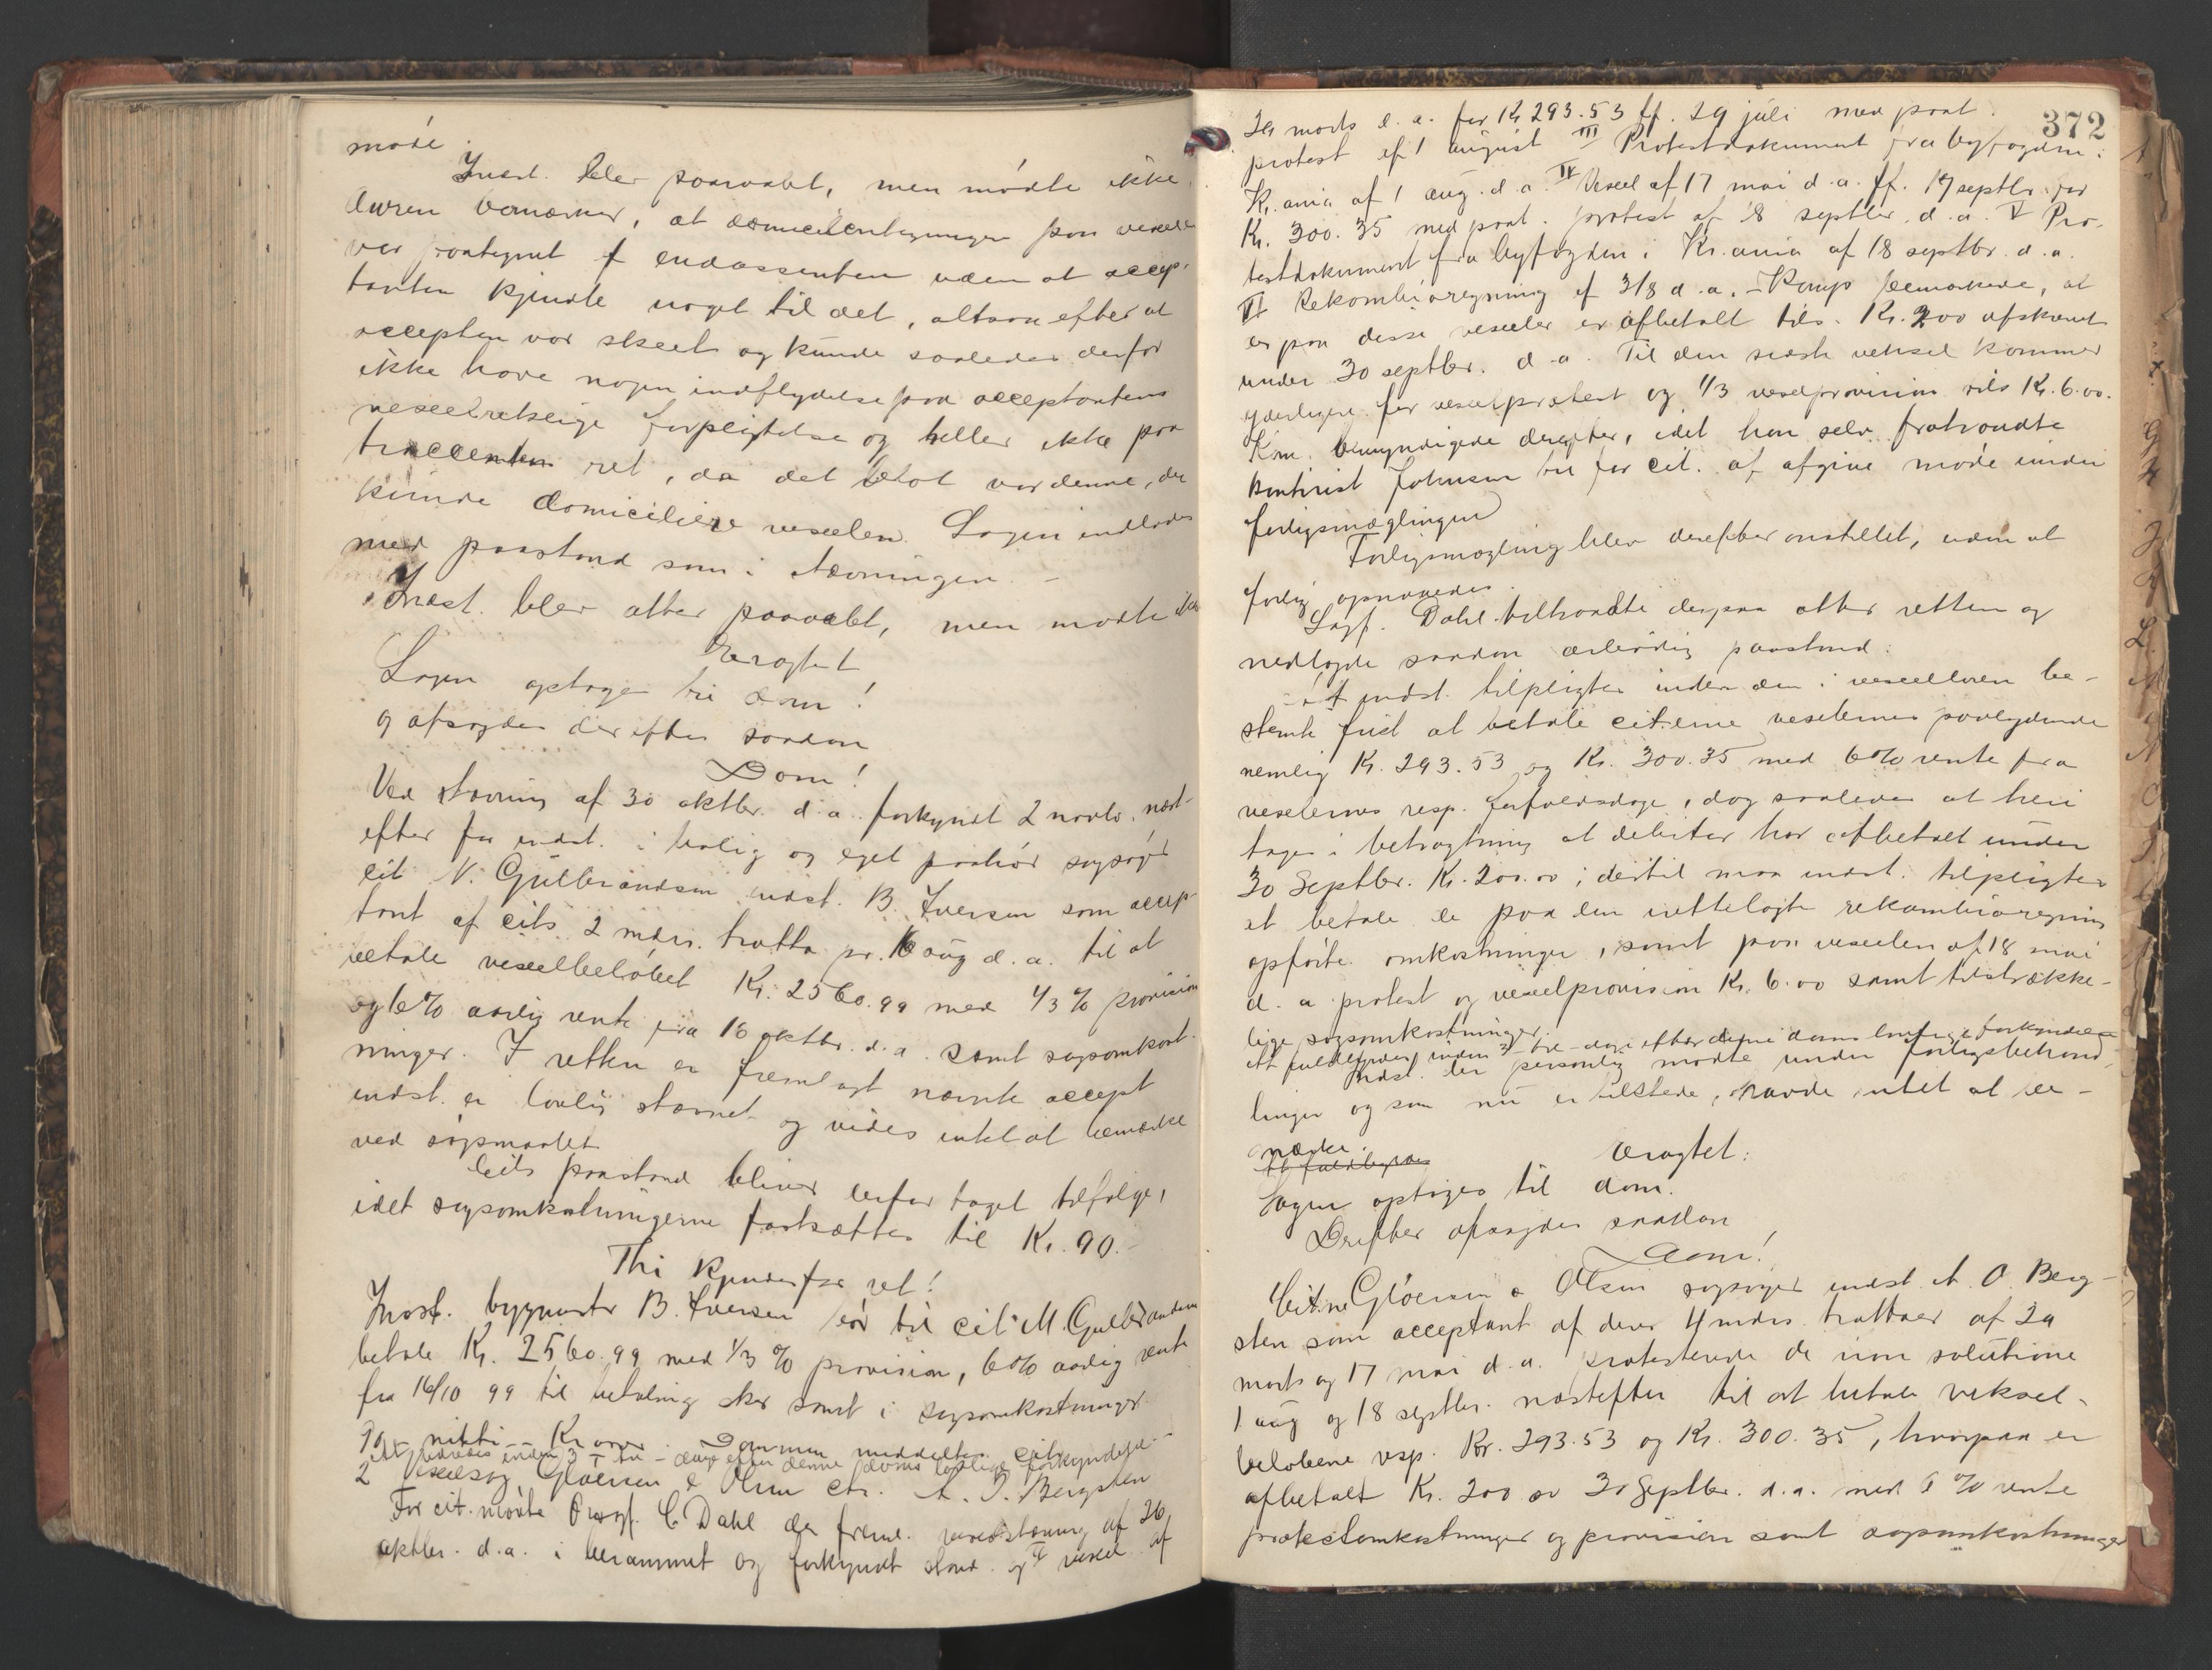 møde.
Indst. blev paaraabt, men mødte ikke.
Auren bemærker, at domicilantegningen paa vexelen
var paategnet af endossenten uden at accep-
tanten kjendte noget til det, altsaa efter at
accepten var skeet og kunde saaledes derfor
ikke have nogen indflydelse paa acceptantens
vexelretslige forpligtelse og heller ikke paa
trassenten ret, da det blot var denne, der
kunde domiciliere vexelen. Sagen indlodes
med paastand som i stævningen. -
Indst. blev atter paaraabt, men mødte ikke
Eragtet
Sagen optages til dom!
og afsagdes derefter saadan
Dom!
Ved stævning af 30 oktbr. d.a. forkyndt 2 novbr. næst-
efter for indst. i bolig og eget paahør sagsøger
cit N. Gulbrandsen indst. B. Iversen som accep-
tant af cits 2 mdrs. tratta pr. 16 aug d.a. til at
betale vexelbeløbet Kr. 2560.99 med 1/3 % provision
og 6% aarlig rente fra 16 oktbr. d.a. samt sagsomkost-
ninger. I retten er fremlagt nævnte accept
indst. er lovlig stævnet og vides intet at bemærke
ved søgsmaalet
Cits paastand bliver derfor taget tilfølge,
idet sagsomkostningerne fastsættes til Kr. 90.-
Thi kjendes for ret!
Indst. bygmester B. Iversen bør til cit M. Gulbrandsen
betale Kr. 2560.99 med 1/3 % provision, 6% aarlig rente
fra 16/10 99 til betaling sker samt i sagsomkostninger
90 - nitti - Kroner. Dommen meddeltes cit.
At fuldbyrdes inden 3 - tre - dage efter denne doms lovlige forkyndelse. -
2 Vexelsag Gløersen & Olsen ctr. A. O. Bergsten
For cit. mødte Orsgf. C. Dahl der freml. vexelstævning af 26
oktbr. d.a. i berammet og forkyndt stand og I vexel af
372
29 marts d.a. for Kr 293.53 ff. 29 juli med paat.
protest af 1 august III Protestdokument fra byfogden i
Kr.ania af 1 aug. d.a. IV Vexel af 17 mai d.a. ff. 17 septbr. for
Kr. 300.35 med paat. protest af 18 septbr. d.a. V Pro-
testdokument fra byfogden i Kr.ania af 18 septbr. d.a.
VI Rekambioregning af 3/8 d.a. - Komp bemærkede, at
er paa disse vexeler er afbetalt tils. Kr. 200 afskrevet
under 30 septbr. d.a. Til den sidste veksel kommer
yderligere for vexelprotest og 1/3 vexelprovision tils Kr. 6.00.
Km. bemyndigede derefter, idet han selv fratraadte
kontorist Johnsen til for cit. at afgive møde under
forligsmæglingen
Forligsmægling blev derefter anstillet, uden at
forlig opnaaedes.
Sagf. Dahl tiltraadte derpaa atter retten og
nedlagde saadan ærbødig paastand:
at indst. tilpligtes inden den i vexelloven be-
stemte frist at betale citterne vexelernes paalydende
nemlig Kr. 293.53 og Kr. 300.35 med 6% rente fra
vexelernes resp. forfaldsdage, dog saaledes at heri
tages i betragtning at debitor har afbetalt under
30 Septbr. Kr. 200.00; dertil maa indst. tilpligtes
at betale de paa den irettelagte rekambioregning
opførte omkostninger, samt paa vexelen af 18 mai
d. a protest og vexelprovision Kr. 6.00 samt tilstrække-
lige sagsomkostninger.
At fuldbyrdes inden 3 - tre - dage efter denne doms lovlige forkyndelse
Indst. der personlig mødte under forligsbehand-
lingen og som nu er tilstede, havde intet at be-
mærke.
At fuldbyrdes
Eragtet:
Sagen optages til dom.
Derefter afsagdes saadan
Dom!
Cit.ne Gløersen & Olsen sagsøger indst. A. O. Berg-
sten som acceptant af deres 4 mdrs. trattaer af 29
marts og 17 mai d.a. protesterede de non solutione
1 aug og 18 septbr. næstefter til at betale veksel-
beløbene resp. Kr. 293.53 og Kr. 300.35, hvorpaa er
afbetalt Kr. 200 30 Septbr. d.a. med 6 % rente
protestomkostninger og provision samt sagsomkostninger